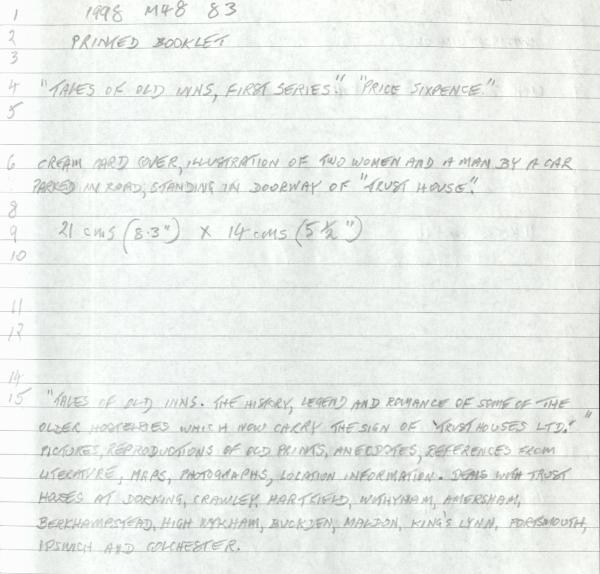 1 1998 M48 83
2 PRINTED BOOKLET
3
4 "TALES OF OLD INNS, FIRST SERIES." "PRICE SIXPENCE."
5
6 CREAM CARD COVER, ILLUSTRATION OF TWO WOMEN AND A MAN BY A CAR
PARKED IN ROAD, STANDING IN DOORWAY OF "TRUST HOUSE".
8
9 21 cms (8.3") x 14 cms (5½")
10
11
12
14
15 "TALES OF OLD INNS. THE HISTORY, LEGEND AND ROMANCE OF SOME OF THE
OLDER HOSTELRIES WHICH NOW CARRY THE SIGN OF 'TRUST HOUSES LTD.' "
PICTURES, REPRODUCTIONS OF OLD PRINTS, ANECDOTES, REFERENCES FROM
LITERATURE, MAPS, PHOTOGRAPHS, LOCATION INFORMATION. DEALS WITH TRUST
HOUSES AT DORKING, CRAWLEY, HARTFIELD, WITHYHAM, AMERSHAM,
BERKHAMPSTEAD, HIGH WYKHAM, BUCKDEN, MALDON, KING'S LYNN, PORTSMOUTH,
IPSWICH AND COLCHESTER.